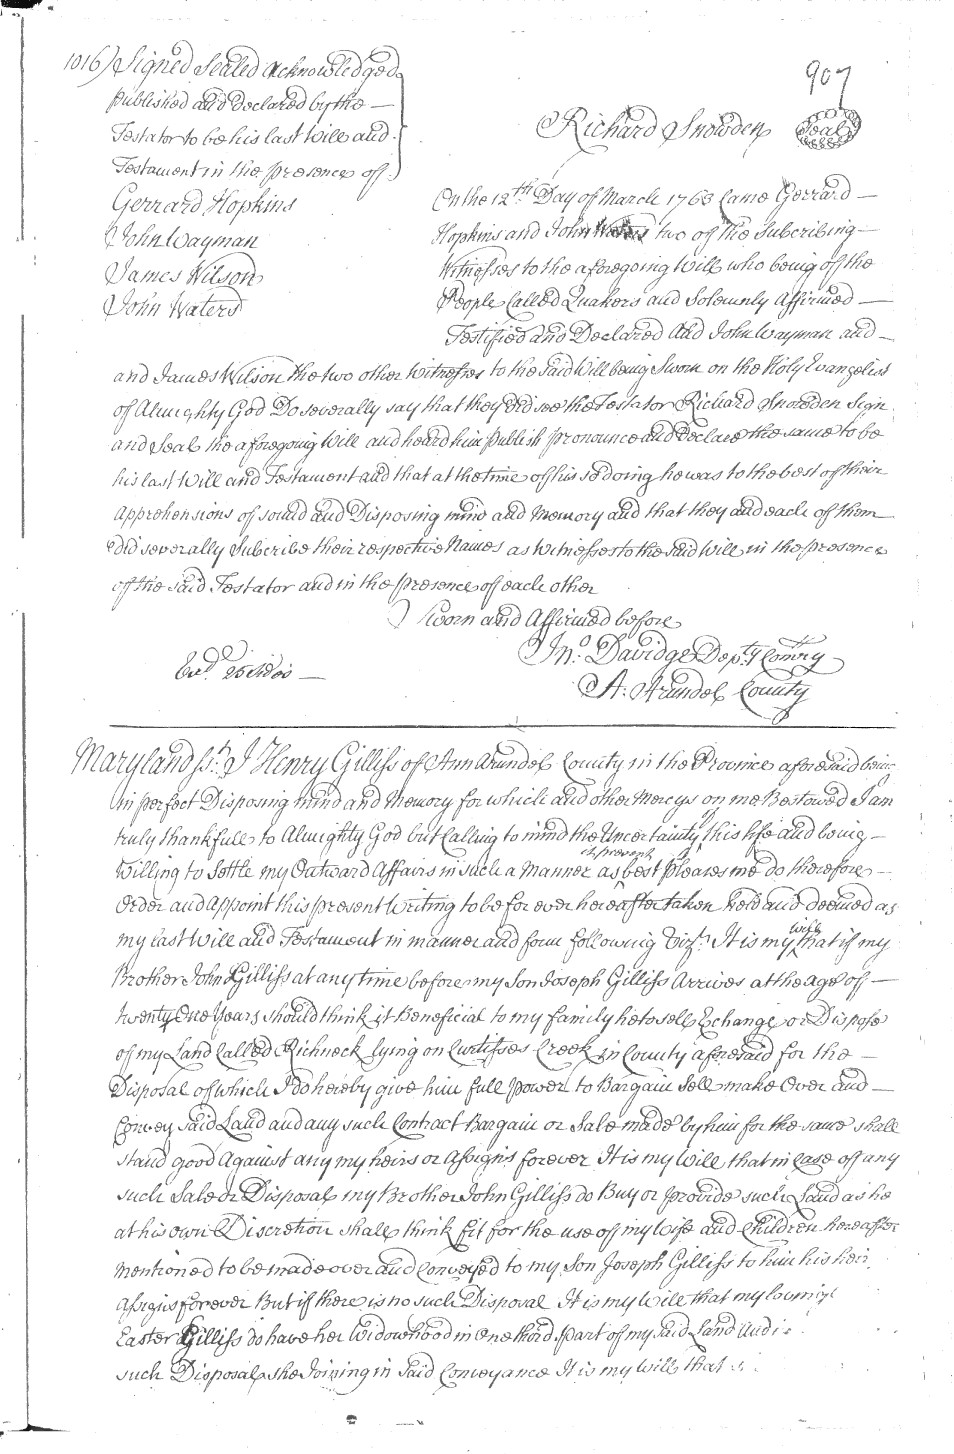 907
1016) Signed Sealed Acknowledged
published and Declared by the —
Testator to be his last Will and
Testament in the presence of
Richard Snowden Seal
Gerrard Hopkins
John Wayman
James Wilson
John Waters
On the 12th Day of March 1763 Came Gerrard —
Hopkins and John Waters two of the Subcribing —
Witnesses to the aforegoing Will who being of the
People Called Quakers and Solemnly Affirmed —
Testified and Declared And John Wayman and —
and James Wilson the two other Witnesses to the Said Will being Sworn on the Holy Evangelist
of Almighty God Do severally say that they did see the Testator Richard Snowden Sign
and Seal the aforegoing Will and heard him publish pronounce and Declare the same to be
his last Will and Testament and that at the time of his so doing he was to the best of their
Apprehensions of sound and Disposing mind and Memory and that they and each of them
did severally Subcribe their respective Names as Witnesses to the Said Will in the presence
of the said Testator and in the presence of each other
Sworn and Affirmed before
Jno. Davidge Depty Comry
A. Arundel County
Exd.
Maryland Ss. I Henry Gilliss of Ann Arundel County in the Province aforesaid being
in perfect Disposing mind and Memory for which and other Mercys on me Bestowed I am
truly thankfull to Almighty God but Calling to mind the Uncertainty of this life and being —
Willing to Settle my Outward Affairs in such a Manner as at present best pleases me do therefore —
Order and Appoint this present Writing to be for ever hereafter taken held and deemed as
my last Will and Testament in manner and form following Vizt. It is my will that if my
Brother John Gilliss at any time before my Son Joseph Gilliss Arrives at the age of —
twenty One Years should think it Beneficial to my family he to sell Echange or Dispose
of my Land Called Richneck lying on Curtisses Creek in County aforesaid for the —
Disposal of which I do hereby give him full power to Bargain Sell make Over and —
Convey said Land and any such Contract Bargain or Sale made by him for the same shall
stand good Against any my heirs or Assigns forever It is my Will that in Case of any
such Sale or Disposal my Brother John Gilliss do Buy or provide such Land as he
at his own Discretion shall think fit for the use of my Wife and Children hereafter
Mentioned to be made over and Conveyed to my Son Joseph Gilliss to him his heir
Assigns forever But if there is no such Disposal It is my Will that my loving
Easter Gilliss do have her Widowhood in One third part of my said Land and
such Disposal she Joining in Said Conveyance It is my Will that